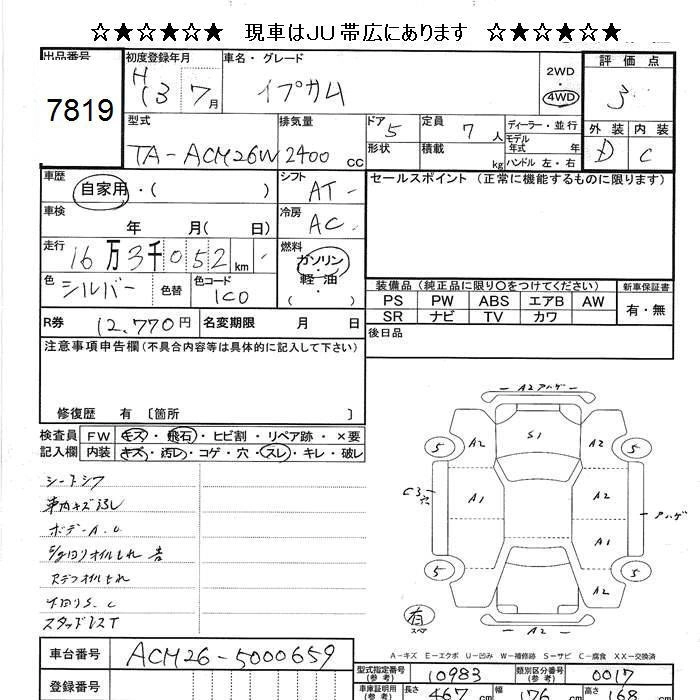 ☆★☆★☆★☆ 現車はJU帯広にあります ☆★☆★☆★☆
出品番号 初度登録年月 車名・グレード 2WD 4WD 評価点
7819 H13 7月 イプサム 3
型式 排気量 ドア 5 定員 7人 ディーラー・並行 外装 内装
TA-ACM26W 2400cc 形状 積載 kg モデル年式 年 ハンドル 左・右 D C
車歴 自家用・( ) シフト AT セールスポイント (正常に機能するものに限ります)
車検 年 月( 日) 冷房 AC
走行 16万3千052km 燃料 ガソリン・軽油
色 シルバー 色替 色コード 1C0
装備品 (純正品に限り○をつけてください) 新車保証書
PS PW ABS エアB AW 有・無
SR ナビ TV カワ
R券 12,770円 名変期限 月 日 後日品
注意事項申告欄(不具合内容等は具体的に記入して下さい)
修復歴 有 〔箇所 〕
検査員 FW キズ・飛石・ヒビ割・リペア跡・×要
記入欄 内装 キズ・汚レ・コゲ・穴・スレ・キレ・破レ
シートシワ
車内キズ汚レ
ボデーA.U
オイルもれ
Rデフオイルもれ
下回りS.C
スタッドレスT
A2 アハゲ
S1
5 A2 A2 5
C3穴 A1 A2 アハゲ
A1
5 A2 5
有 スペア A2
A-キズ E-エクボ U-凹み W-補修跡 S-サビ C-腐食 XX-交換済
車台番号 ACM26-5000659
登録番号
型式指定番号(参考) 10983 類別区分番号(参考) 0017
車庫証明用(参考) 長さ 467cm 幅 176cm 高さ 168cm